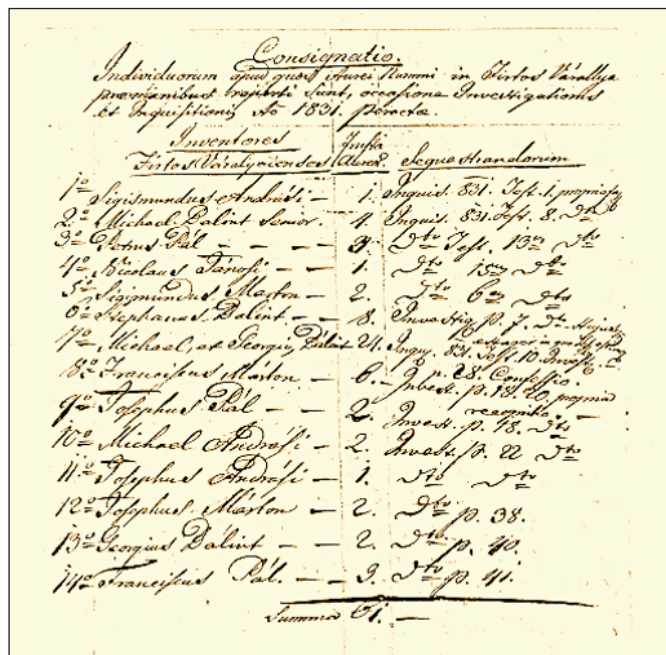 Consignatio.
Individuorum apud quos Aurei Nummi in Firtos Várallya
prae manibus reperti sunt, occasione Investigationis
et Inquisitionis Ao 1831. peractae.
Inventores
Firtos Váralyaienses Aureor. Sequestrandorum
1o Sigismundus Andrási — 1. Inquis. 831. Test. 1. propria
2o Michael Bálint Senior. 4. Inquis. 831. Test. 8. Dto
3o Petrus Pál — — — 3. Dto Test. 13us Dto
4o Nicolaus Jánosi — — 1. Dto 15us Dto
5o Sigismundus Márton — 2. Dto 6us Dto
6o Stephanus Bálint — 8. Investig. p. 7. Dto
7o Michael, et Georgius Bálint 24. Inqu. 831. Test. 10. Invest.
8o Franciscus Márton — 6. p. 28. Confessio.
Invest. p. 18. 20. propria
9o Josephus Pál — 2. recognitio —
Invest. p. 48. Dto
10o Michael Andrási — 2. Invest. p. 22 Dto
11o Josephus Andrási — 1. Dto Dto
12o Josephus Márton — 2. Dto p. 38.
13o Georgius Bálint — — 2. Dto p. 40.
14o Franciscus Pál. — — 3. Dto p. 41.
Summa 61. —